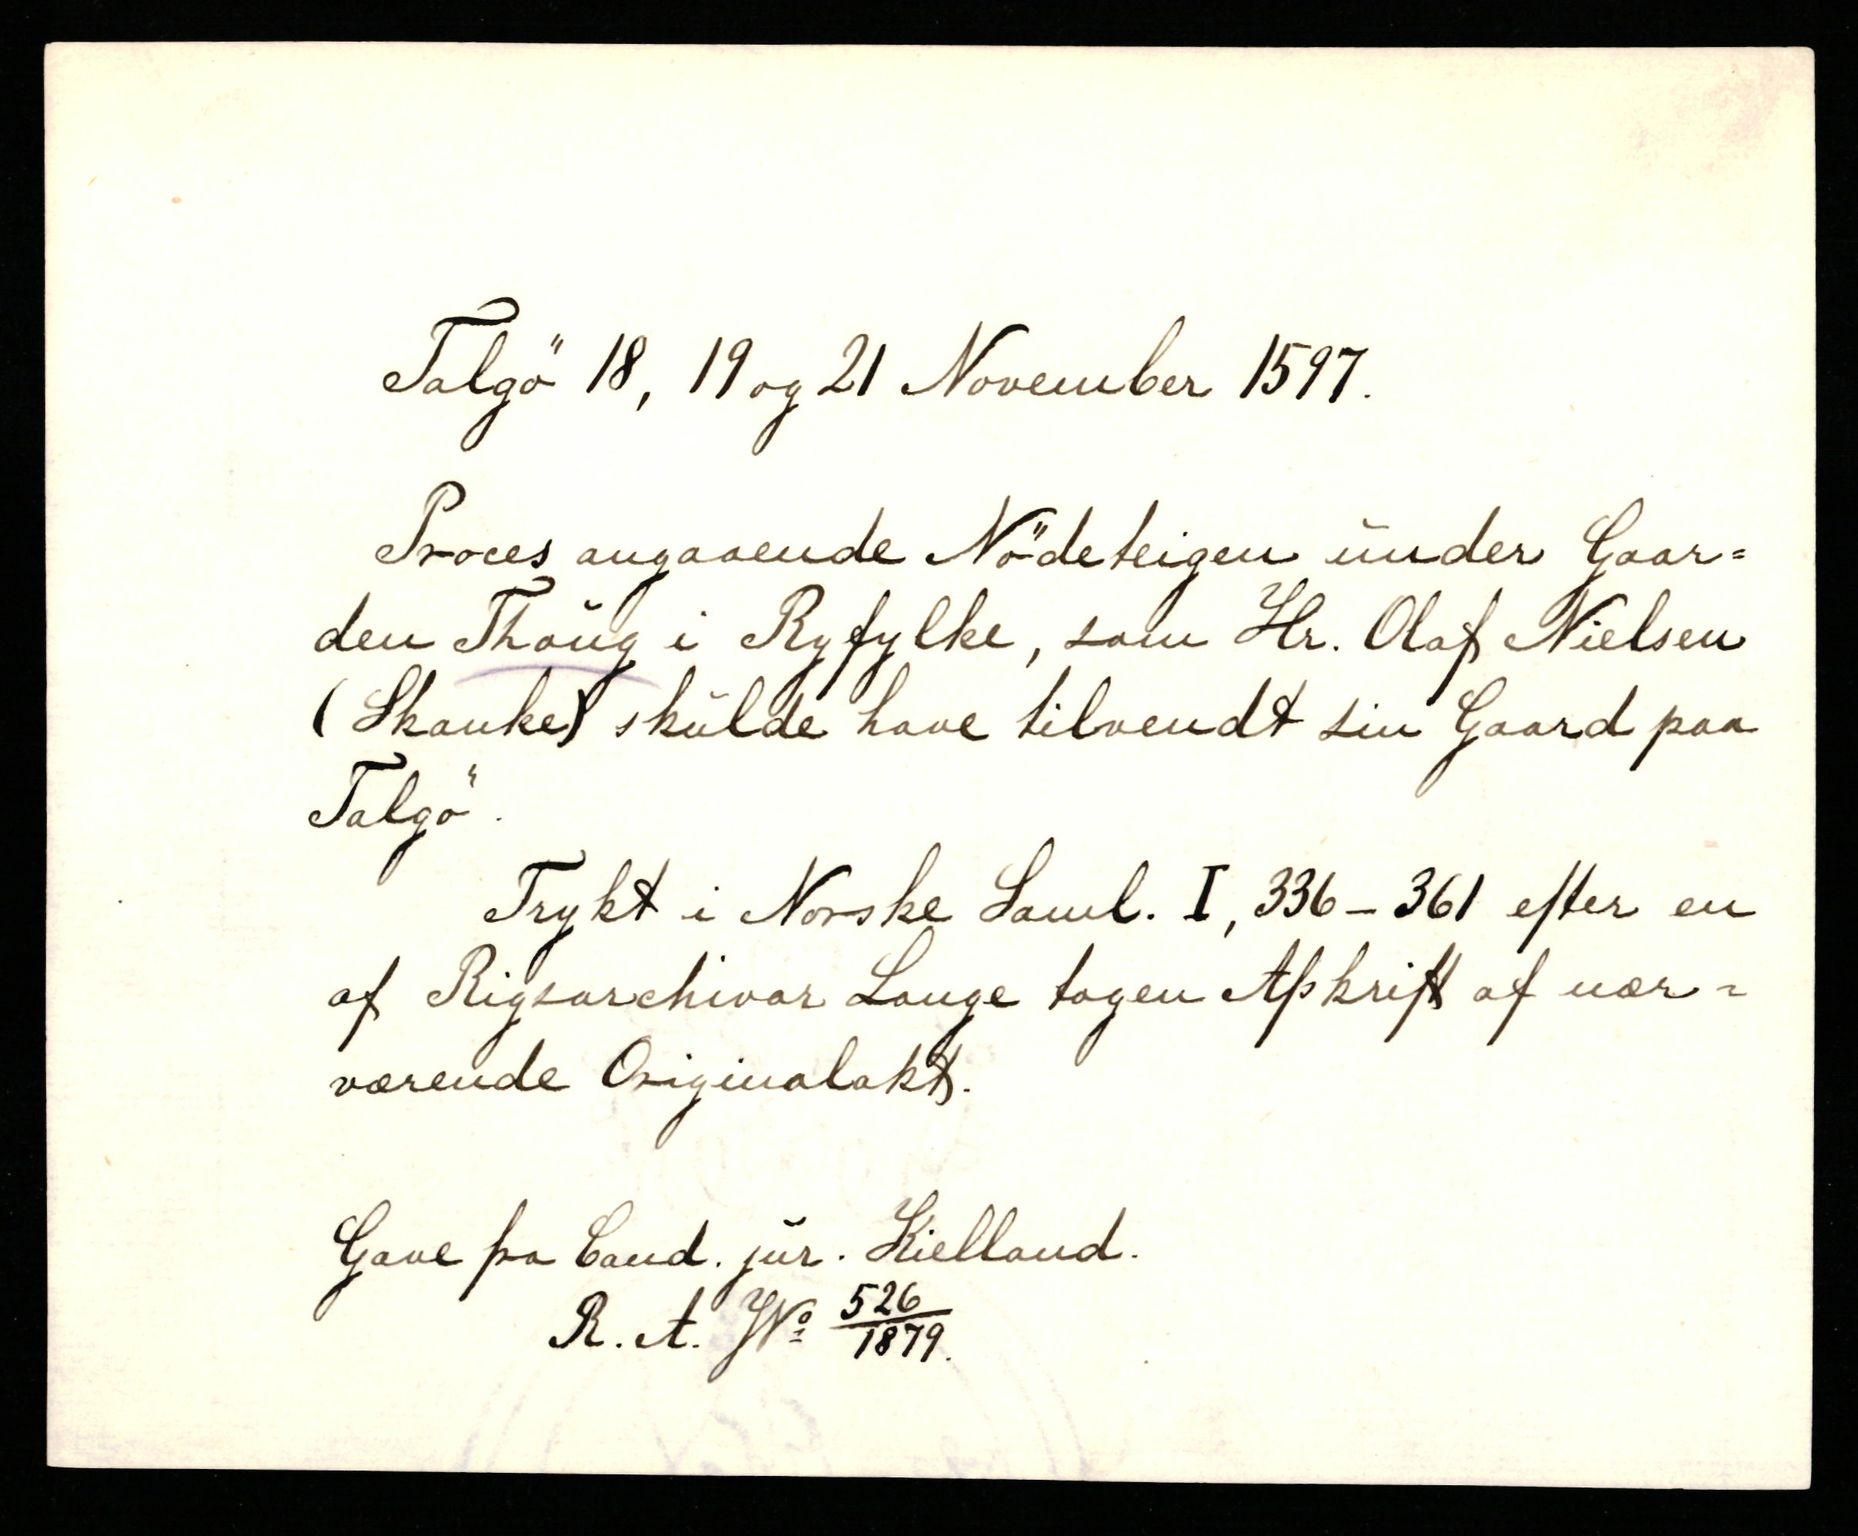 Talgö 18, 19 og 21 November 1597.
Proces angaaende Nödeteigen under Gaar=
den Thaug i Ryfylke, som Hr. Olaf Nielsen
(Skanke) skulde have tilvendt sin Gaard paa
Talgö.
Trykt i Norske Saml. I, 336–361 efter en
af Rigsarchivar Lange tagen Afskrift af nær=
værende Originalakt.
Gave fra Cand. jur. Kielland.
R. A. JNo 526/1879.